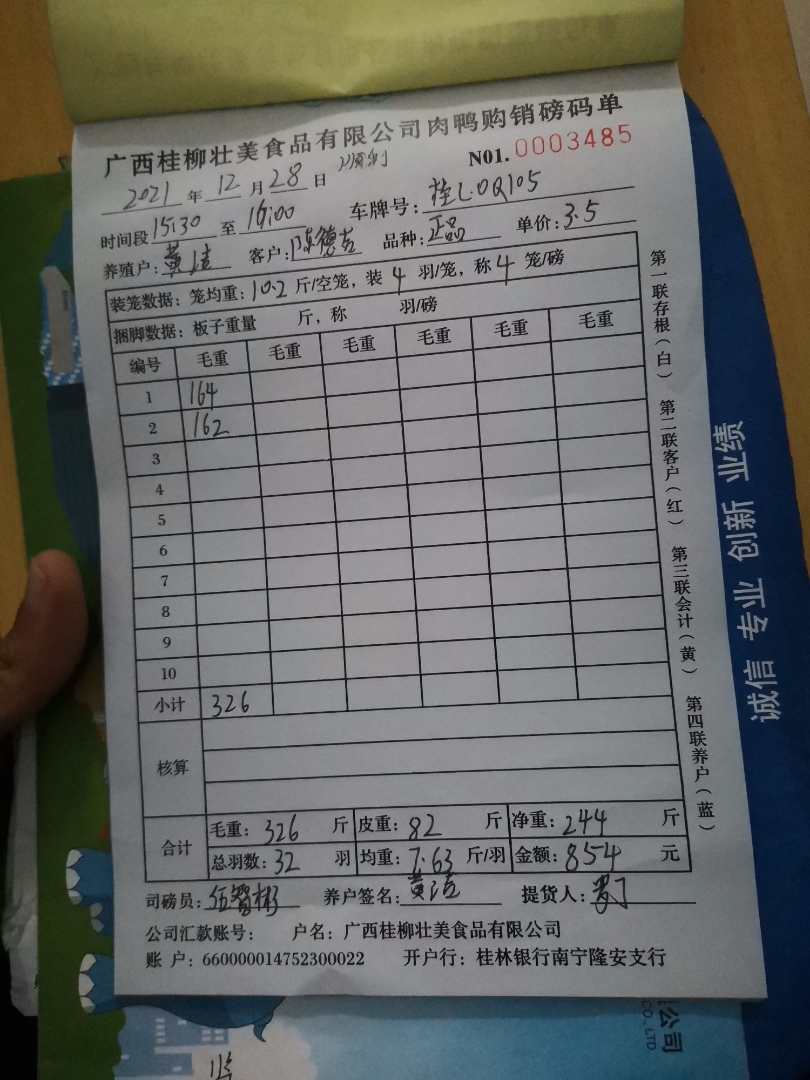 广西桂柳壮美食品有限公司肉鸭购销磅码单
2021 年 12 月 28 日
N01. 0003485
时间段 15:30 至 16:00 车牌号: 桂L0Q105
养殖户: 黄洁 客户: 陈德吉 品种: 正品 单价: 3.5
装笼数据: 笼均重: 10.2 斤/空笼, 装 4 羽/笼, 称 4 笼/磅
捆脚数据: 板子重量 斤, 称 羽/磅
编号 毛重 毛重 毛重 毛重 毛重 毛重
1 164
2 162
3
4
5
6
7
8
9
10
小计 326
核算
合计 毛重: 326 斤 皮重: 82 斤 净重: 244 斤
总羽数: 32 羽 均重: 7.63 斤/羽 金额: 854 元
司磅员: 伍智彬 养户签名: 黄洁 提货人:
公司汇款账号: 户名: 广西桂柳壮美食品有限公司
账 户: 660000014752300022 开户行: 桂林银行南宁隆安支行
第一联存根(白) 第二联客户(红) 第三联会计(黄) 第四联养户(蓝)
诚信 专业 创新 业绩
公司
CO.,LTD